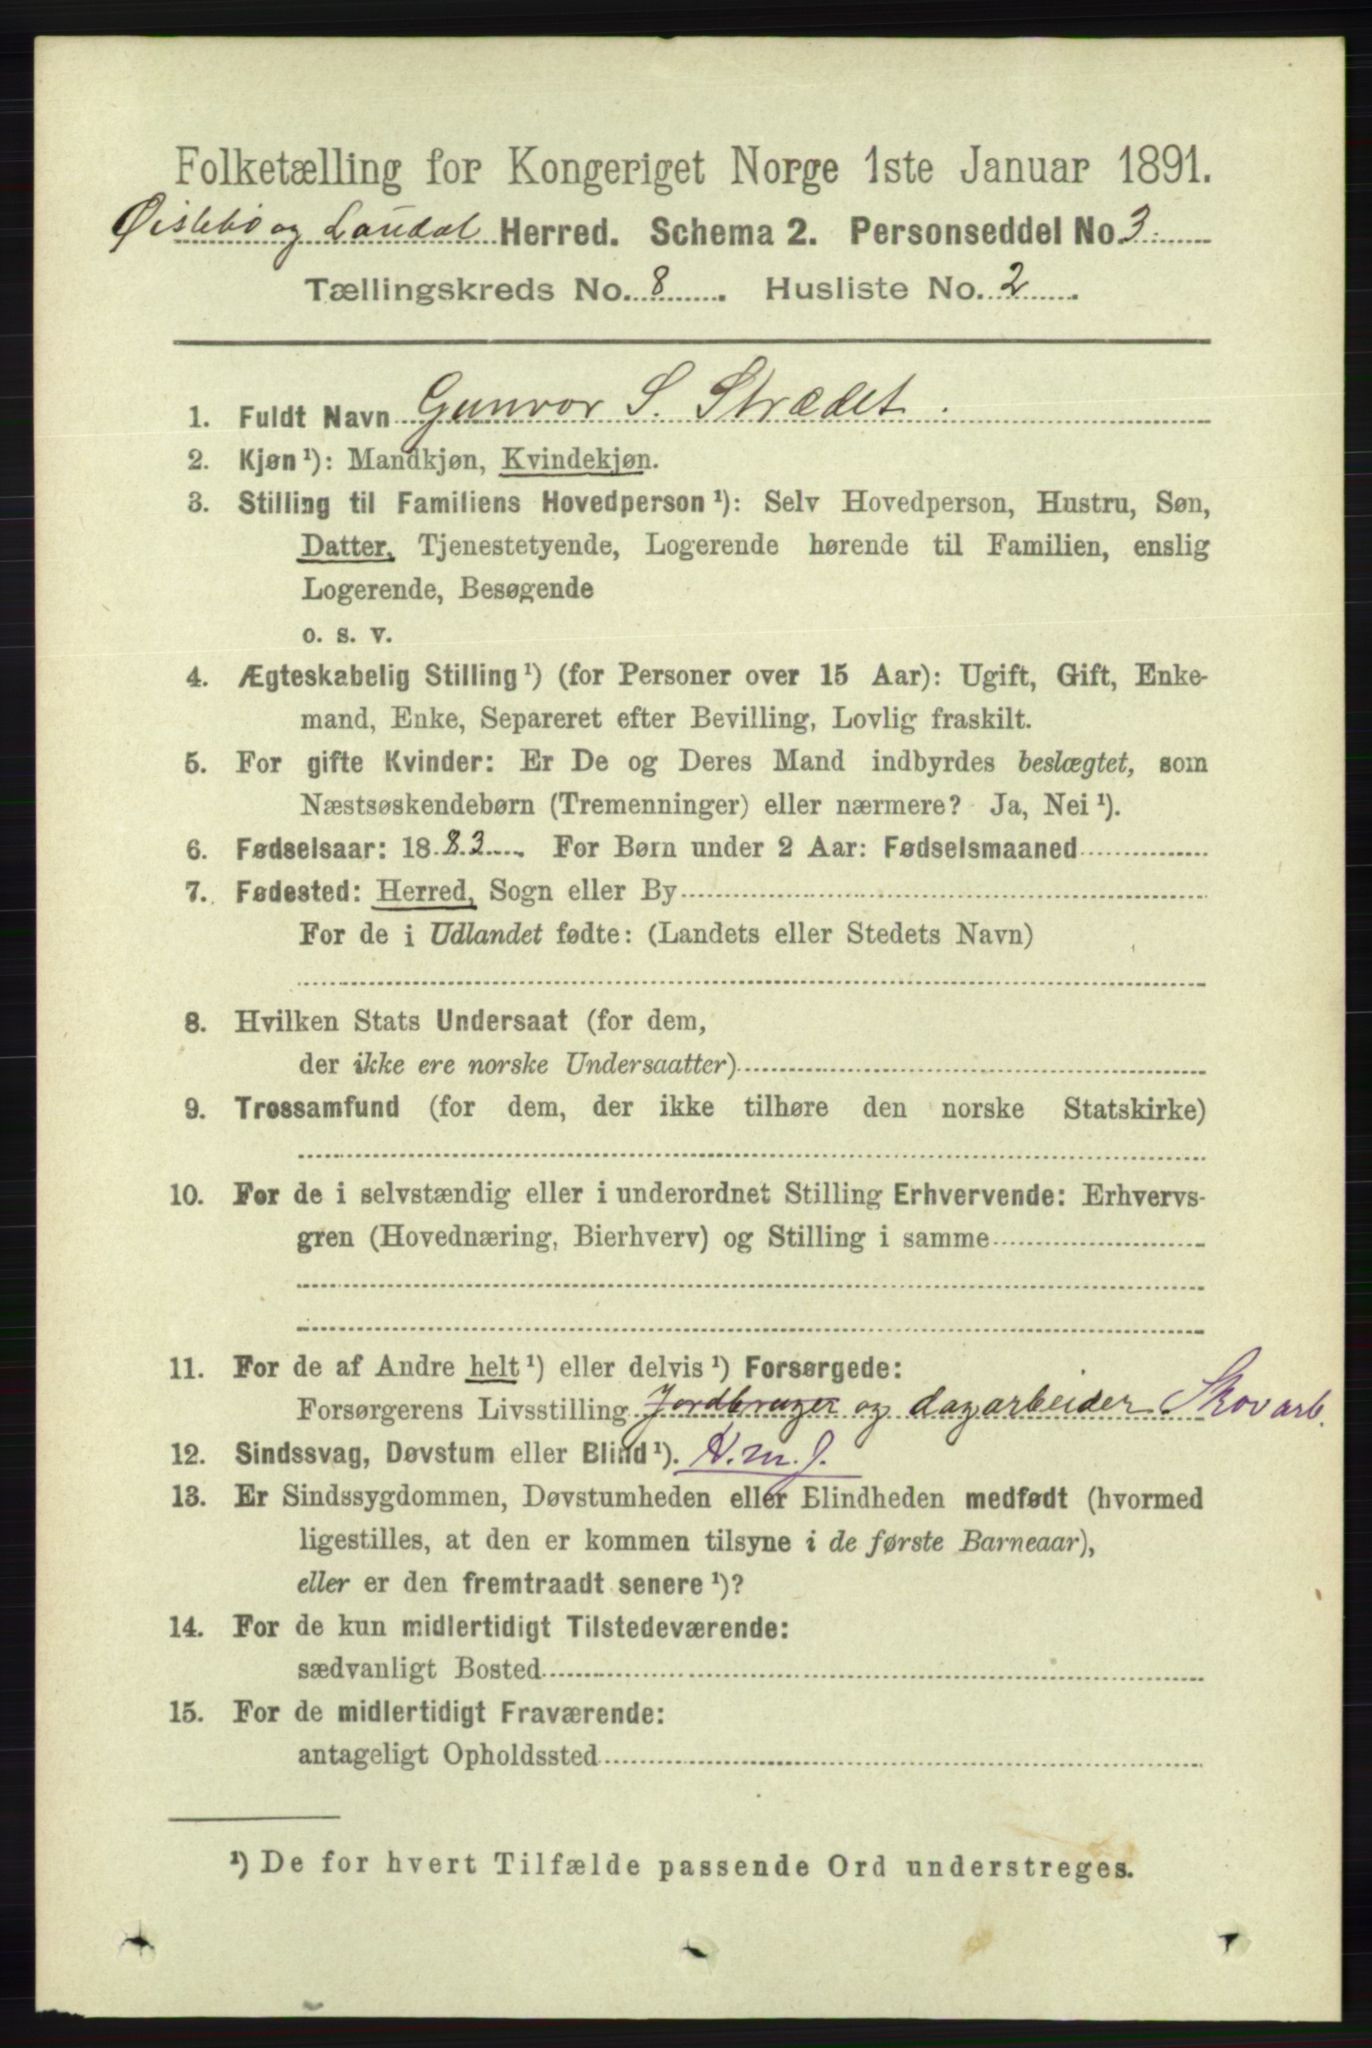 Folketælling for Kongeriget Norge 1ste Januar 1891.
Øislebø og Laudal Herred. Schema 2. Personseddel No 3.
Tællingskreds No. 8. Husliste No. 2.
1. Fuldt Navn Gunvor S. Strædet.
2. Kjøn ¹): Mandkjøn, Kvindekjøn.
3. Stilling til Familiens Hovedperson ¹): Selv Hovedperson, Hustru, Søn,
Datter, Tjenestetyende, Logerende hørende til Familien, enslig
Logerende, Besøgende
o. s. v.
4. Ægteskabelig Stilling ¹) (for Personer over 15 Aar): Ugift, Gift, Enke-
mand, Enke, Separeret efter Bevilling, Lovlig fraskilt.
5. For gifte Kvinder: Er De og Deres Mand indbyrdes beslægtet, som
Næstsøskendebørn (Tremenninger) eller nærmere? Ja, Nei ¹).
6. Fødselsaar: 1883. For Børn under 2 Aar: Fødselsmaaned
7. Fødested: Herred, Sogn eller By
For de i Udlandet fødte: (Landets eller Stedets Navn)
8. Hvilken Stats Undersaat (for dem,
der ikke ere norske Undersaatter)
9. Trossamfund (for dem, der ikke tilhøre den norske Statskirke)
10. For de i selvstændig eller i underordnet Stilling Erhvervende: Erhvervs-
gren (Hovednæring, Bierhverv) og Stilling i samme
11. For de af Andre helt ¹) eller delvis ¹) Forsørgede:
Forsørgerens Livsstilling Jordbruger og dagarbeider Skovarb.
12. Sindssvag, Døvstum eller Blind ¹).
13. Er Sindssygdommen, Døvstumheden eller Blindheden medfødt (hvormed
ligestilles, at den er kommen tilsyne i de første Barneaar),
eller er den fremtraadt senere ¹)?
14. For de kun midlertidigt Tilstedeværende:
sædvanligt Bosted
15. For de midlertidigt Fraværende:
antageligt Opholdssted
¹) De for hvert Tilfælde passende Ord understreges.